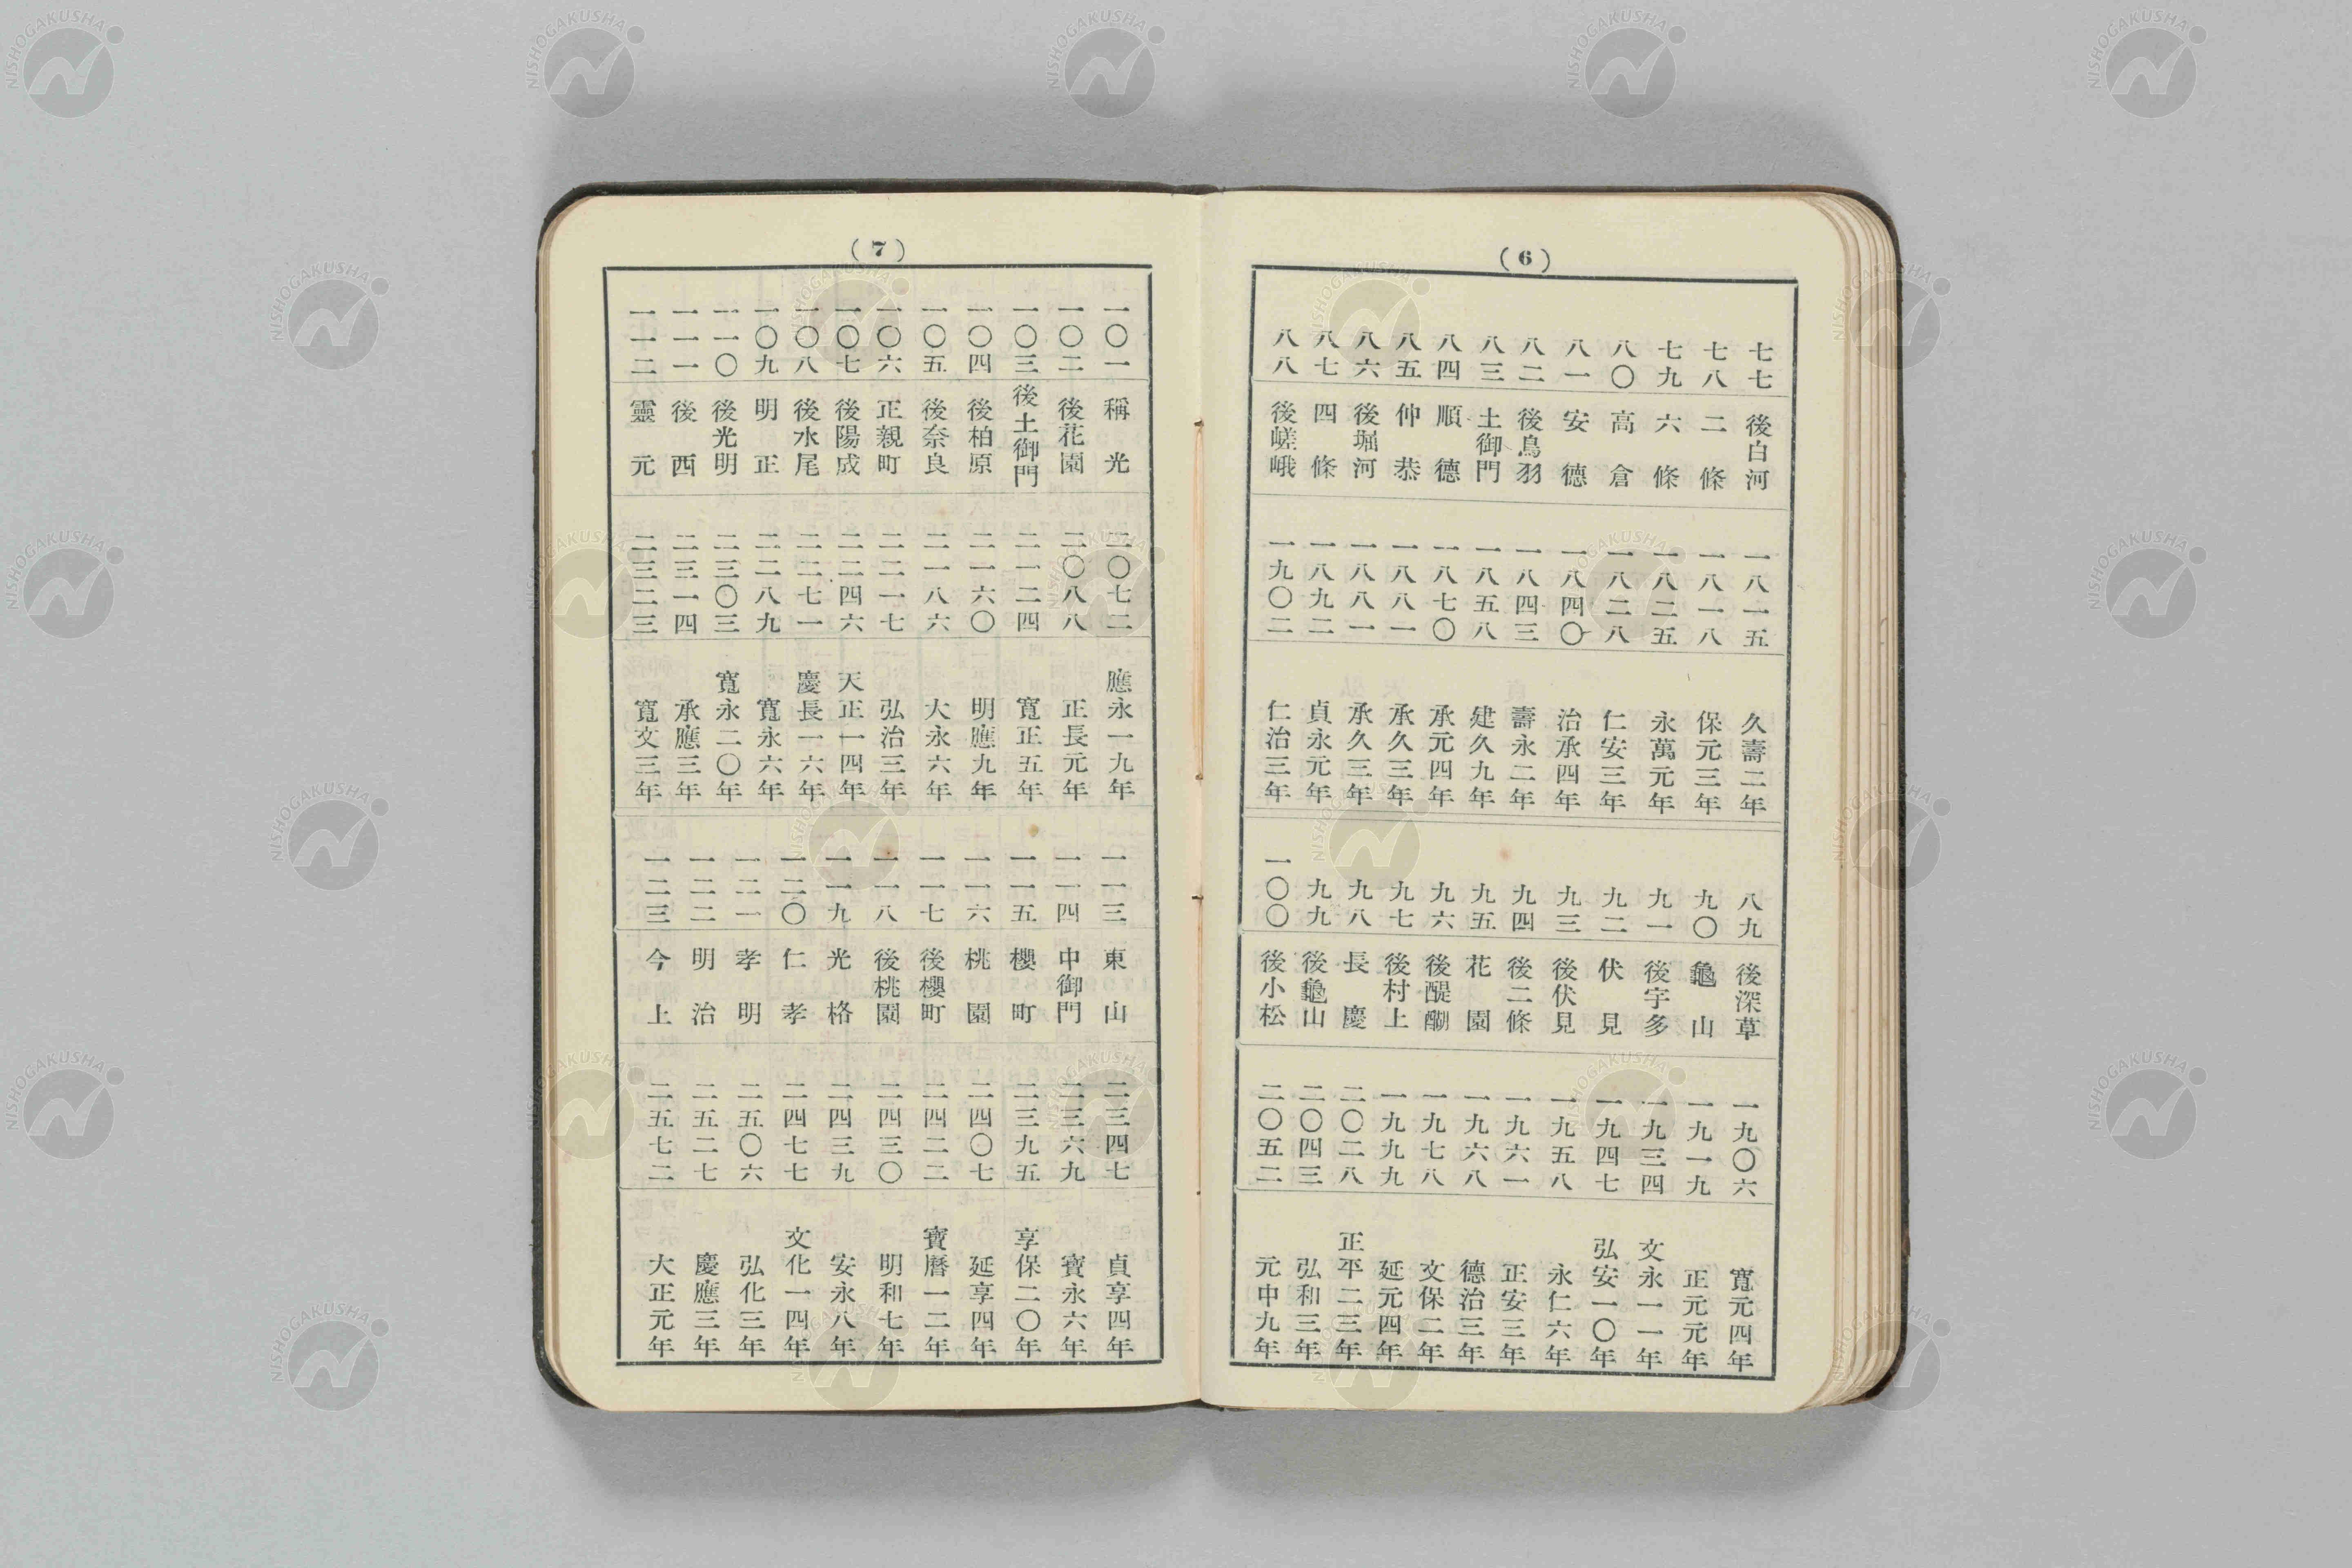 (6)
七七 後白河 一八一五 久壽二年
七八 二條 一八一八 保元三年
七九 六條 一八二五 永萬元年
八〇 高倉 一八二八 仁安三年
八一 安德 一八四〇 治承四年
八二 後鳥羽 一八四三 壽永二年
八三 土御門 一八五八 建久九年
八四 順德 一八七〇 承元四年
八五 仲恭 一八八一 承久三年
八六 後堀河 一八八一 承久三年
八七 四條 一八九二 貞永元年
八八 後嵯峨 一九〇二 仁治三年
八九 後深草 一九〇六 寬元四年
九〇 龜山 一九一九 正元元年
九一 後宇多 一九三四 文永一一年
九二 伏見 一九四七 弘安一〇年
九三 後伏見 一九五八 永仁六年
九四 後二條 一九六一 正安三年
九五 花園 一九六八 德治三年
九六 後醍醐 一九七八 文保二年
九七 後村上 一九九九 延元四年
九八 長慶 二〇二八 正平二三年
九九 後龜山 二〇四三 弘和三年
一〇〇 後小松 二〇五二 元中九年
(7)
一〇一 稱光 二〇七二 應永一九年
一〇二 後花園 二〇八八 正長元年
一〇三 後土御門 二一二四 寬正五年
一〇四 後柏原 二一六〇 明應九年
一〇五 後奈良 二一八六 大永六年
一〇六 正親町 二二一七 弘治三年
一〇七 後陽成 二二四六 天正一四年
一〇八 後水尾 二二七一 慶長一六年
一〇九 明正 二二八九 寬永六年
一一〇 後光明 二三〇三 寬永二〇年
一一一 後西 二三一四 承應三年
一一二 靈元 二三二三 寬文三年
一一三 東山 二三四七 貞享四年
一一四 中御門 二三六九 寶永六年
一一五 櫻町 二三九五 享保二〇年
一一六 桃園 二四〇七 延享四年
一一七 後櫻町 二四二二 寶曆一二年
一一八 後桃園 二四三〇 明和七年
一一九 光格 二四三九 安永八年
一二〇 仁孝 二四七七 文化一四年
一二一 孝明 二五〇六 弘化三年
一二二 明治 二五二七 慶應三年
一二三 今上 二五七二 大正元年
NISHOGAKUSHA